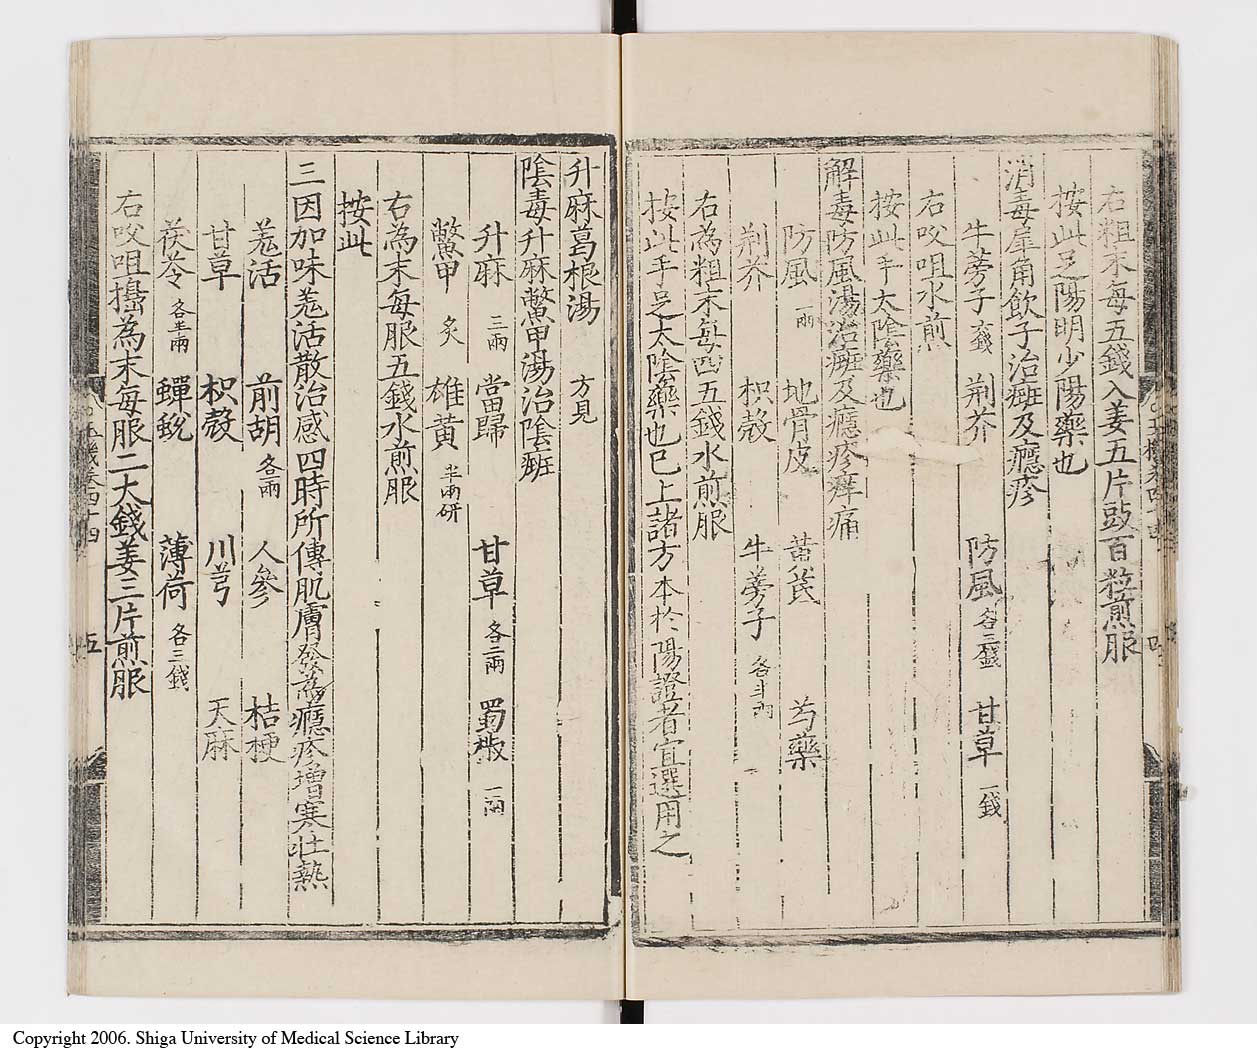 右粗末每五錢入姜五片豉百粒煎服
按此足陽明少陽藥也
消毒犀角飲子治癍及癮疹
牛蒡子六錢 荆芥 防風各二錢 甘草一錢
右㕮咀水煎
按此手太陰藥也
解毒防風湯治癍及癮疹痒痛
防風一兩 地骨皮 黄芪 芍藥
荆芥 枳殻 牛蒡子各半兩
右為粗末每四五錢水煎服
按此手足太陰藥也已上諸方本於陽證者宜選用之
升麻葛根湯 方見
陰毒升麻鱉甲湯治陰癍
升麻三兩 當歸 甘草各二兩 蜀椒一兩
鱉甲炙 雄黄半兩研
右為末每服五錢水煎服
按此
三因加味羗活散治感四時所傳肌膚發為癮疹增寒壯熱
羗活 前胡各兩 人參 桔梗
甘草 枳殻 川芎 天麻
茯苓各半兩 蟬蛻 薄荷各三錢
右㕮咀擣為末每服二大錢姜三片煎服
五
Copyright 2006. Shiga University of Medical Science Library